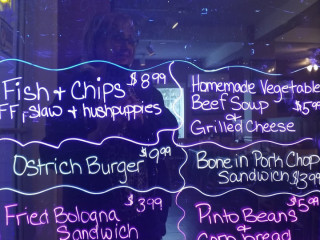 Fish + Chips $8.99
FF, slaw + hushpuppies
Homemade Vegetable
Beef Soup $5.99
&
Grilled Cheese
Ostrich Burger $9.99
Bone in Pork Chop
Sandwich $13.99
Fried Bologna $3.99
Sandwich
Pinto Beans $5.99
&
Corn bread